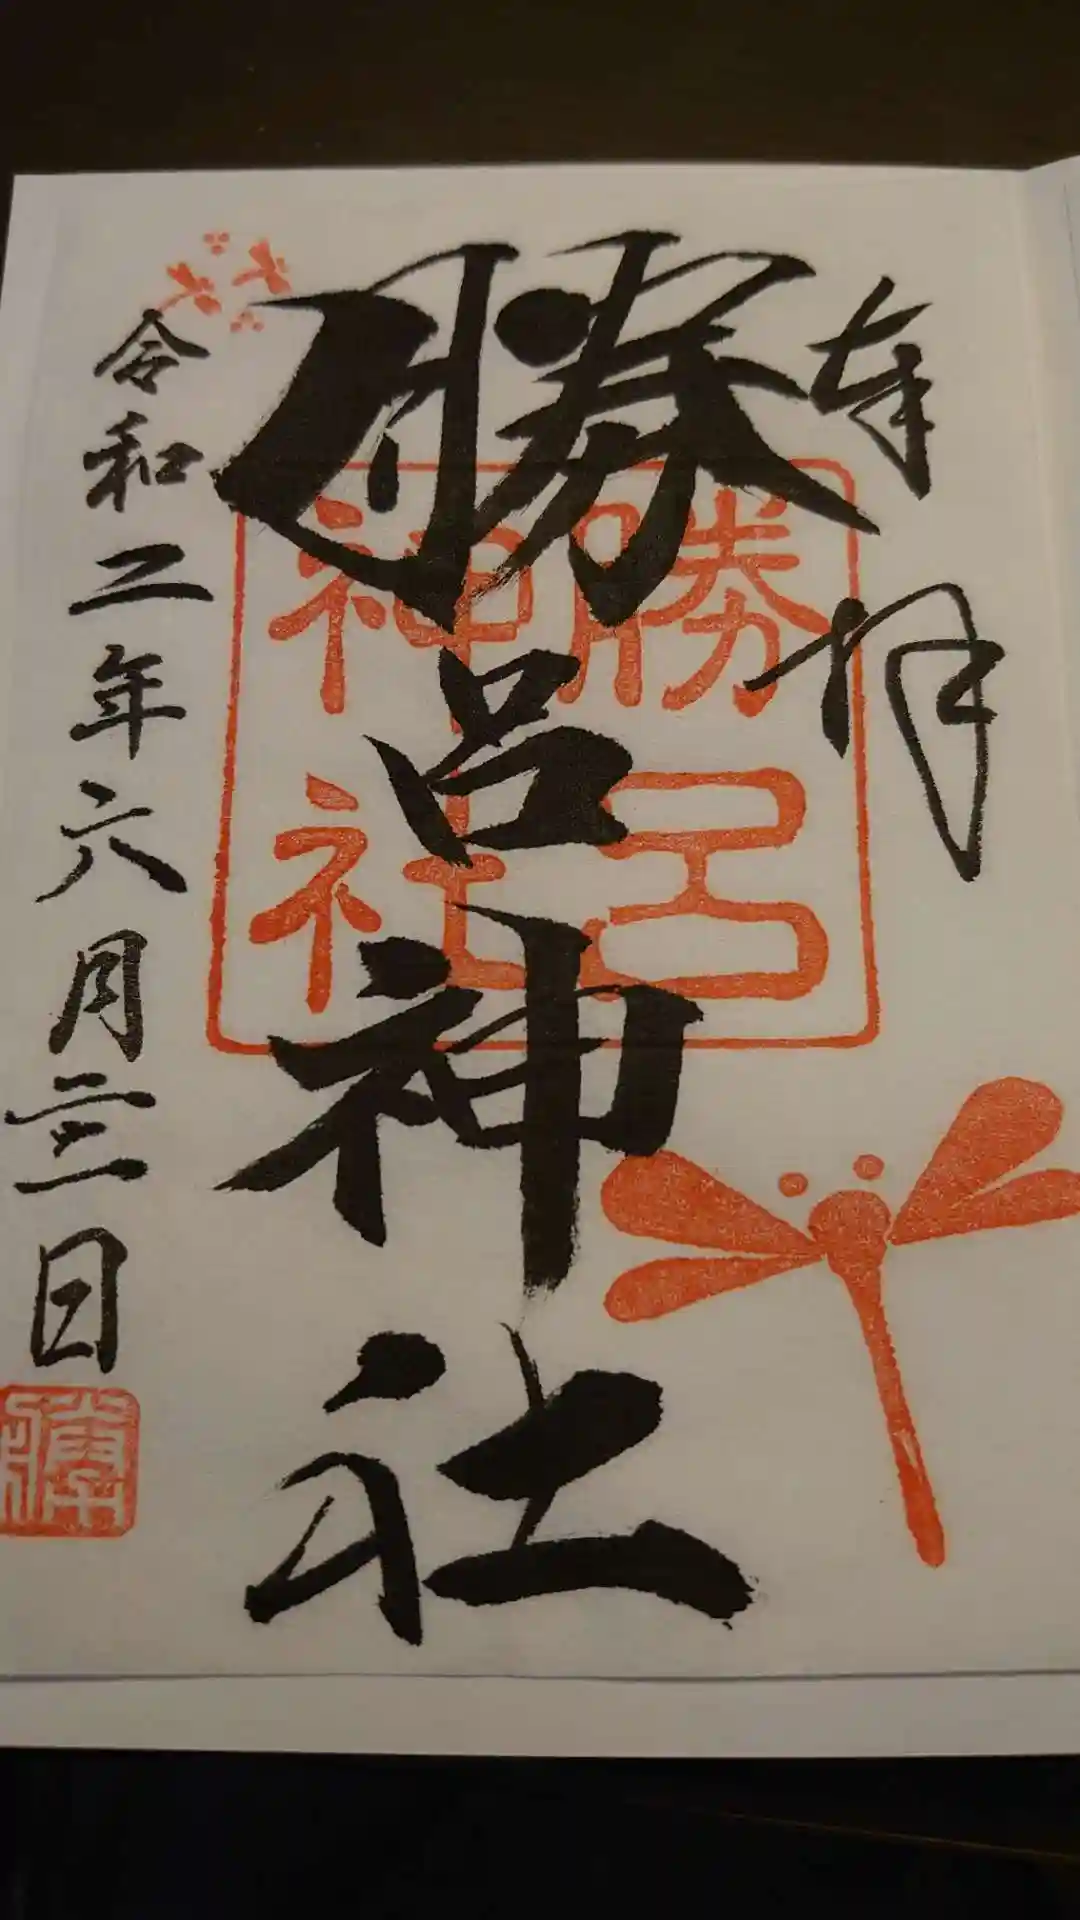 奉拝
勝呂神社
勝呂
神社
令和二年六月三日
勝